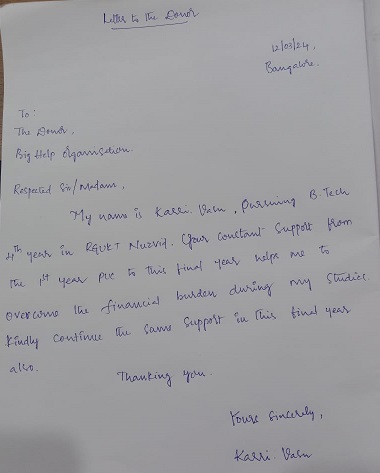 Letter to the Donor
12/03/24,
Bangalore.
To
The Donor,
Big Help Organisation.
Respected Sir/Madam,
My name is Karri. Vasu, pursuing B.Tech
4th year in RGUKT Nuzvid. Your constant support from
the 1st year PUC to this final year helps me to
overcome the financial burden during my studies.
Kindly continue the same support in this final year
also.
Thanking you.
Yours sincerely,
Karri. Vasu